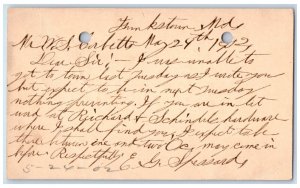 Funkstown, Md,
Mr. W. S. Corbett May 24th, 1902,
Dear Sir; - I was unable to
get to town last Tuesday as I wrote you
but expect to be in next Tuesday
nothing preventing. If you are in let
word at Richard & Schindel's hardware
where I shall find you, I expect to be
there between one and two Oc, may come in
before. Respectfully E. G. Shepard
5-26-02